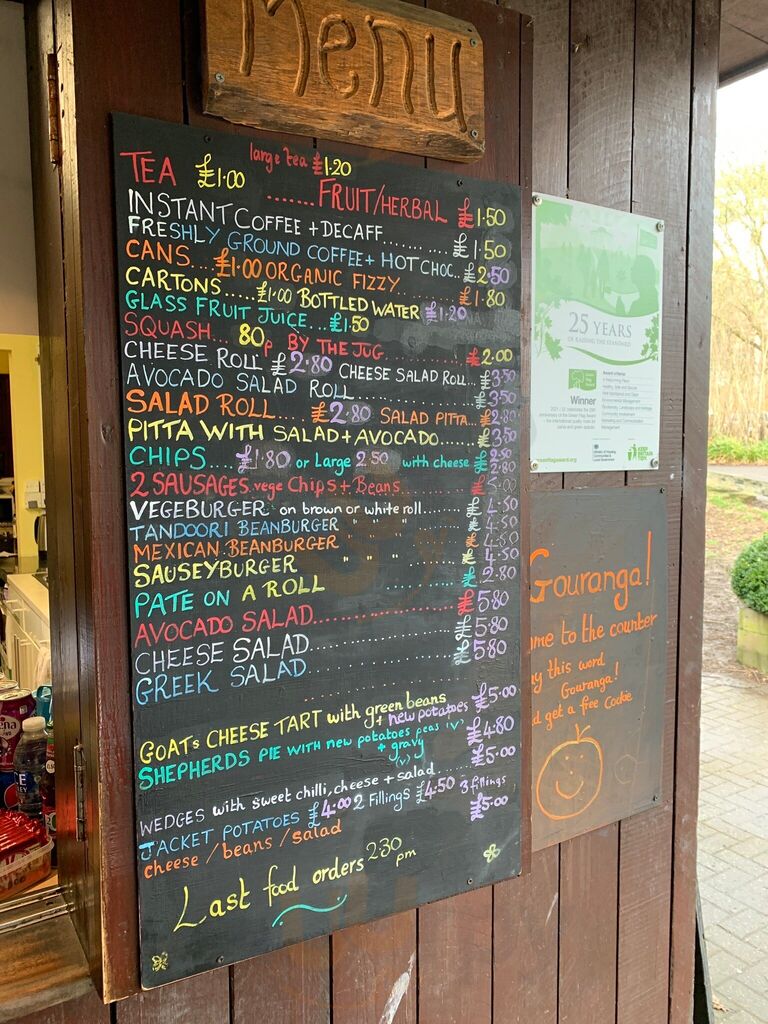 Menu
large tea £1.20
TEA £1.00
......FRUIT/HERBAL £1.50
INSTANT COFFEE + DECAFF......... £1.50
FRESHLY GROUND COFFEE + HOT CHOC... £2.50
CANS... £1.00 ORGANIC FIZZY...... £1.80
CARTONS..... £1.00 BOTTLED WATER £1.20
GLASS FRUIT JUICE... £1.50
SQUASH... 80p BY THE JUG......... £2.00
CHEESE ROLL £2.80 CHEESE SALAD ROLL... £3.50
AVOCADO SALAD ROLL......... £3.50
SALAD ROLL... £2.80 SALAD PITTA... £2.80
PITTA WITH SALAD + AVOCADO...... £3.50
CHIPS.... £1.80 or Large 2.50 with cheese £2.50
2.80
2 SAUSAGES vege Chips + Beans
VEGEBURGER on brown or white roll...... £4.50
TANDOORI BEANBURGER " " " £4.50
MEXICAN BEANBURGER " " " £4.50
SAUSEYBURGER £4.50
PATE ON A ROLL ......... £2.80
AVOCADO SALAD............ £5.80
CHEESE SALAD............ £5.80
GREEK SALAD ............ £5.80
GOATS CHEESE TART with green beans + new potatoes £5.00
SHEPHERDS PIE WITH new potatoes peas (v) £4.80
+ gravy (v) £5.00
WEDGES with sweet chilli, cheese + salad...
JACKET POTATOES £4.00 2 Fillings £4.50 3 fillings £5.00
cheese / beans / salad
Last food orders 2.30 pm
25 YEARS
OF RAISING THE STANDARD
Winner
Gouranga!
me to the counter
y this word
Gouranga!
d get a free Cookie